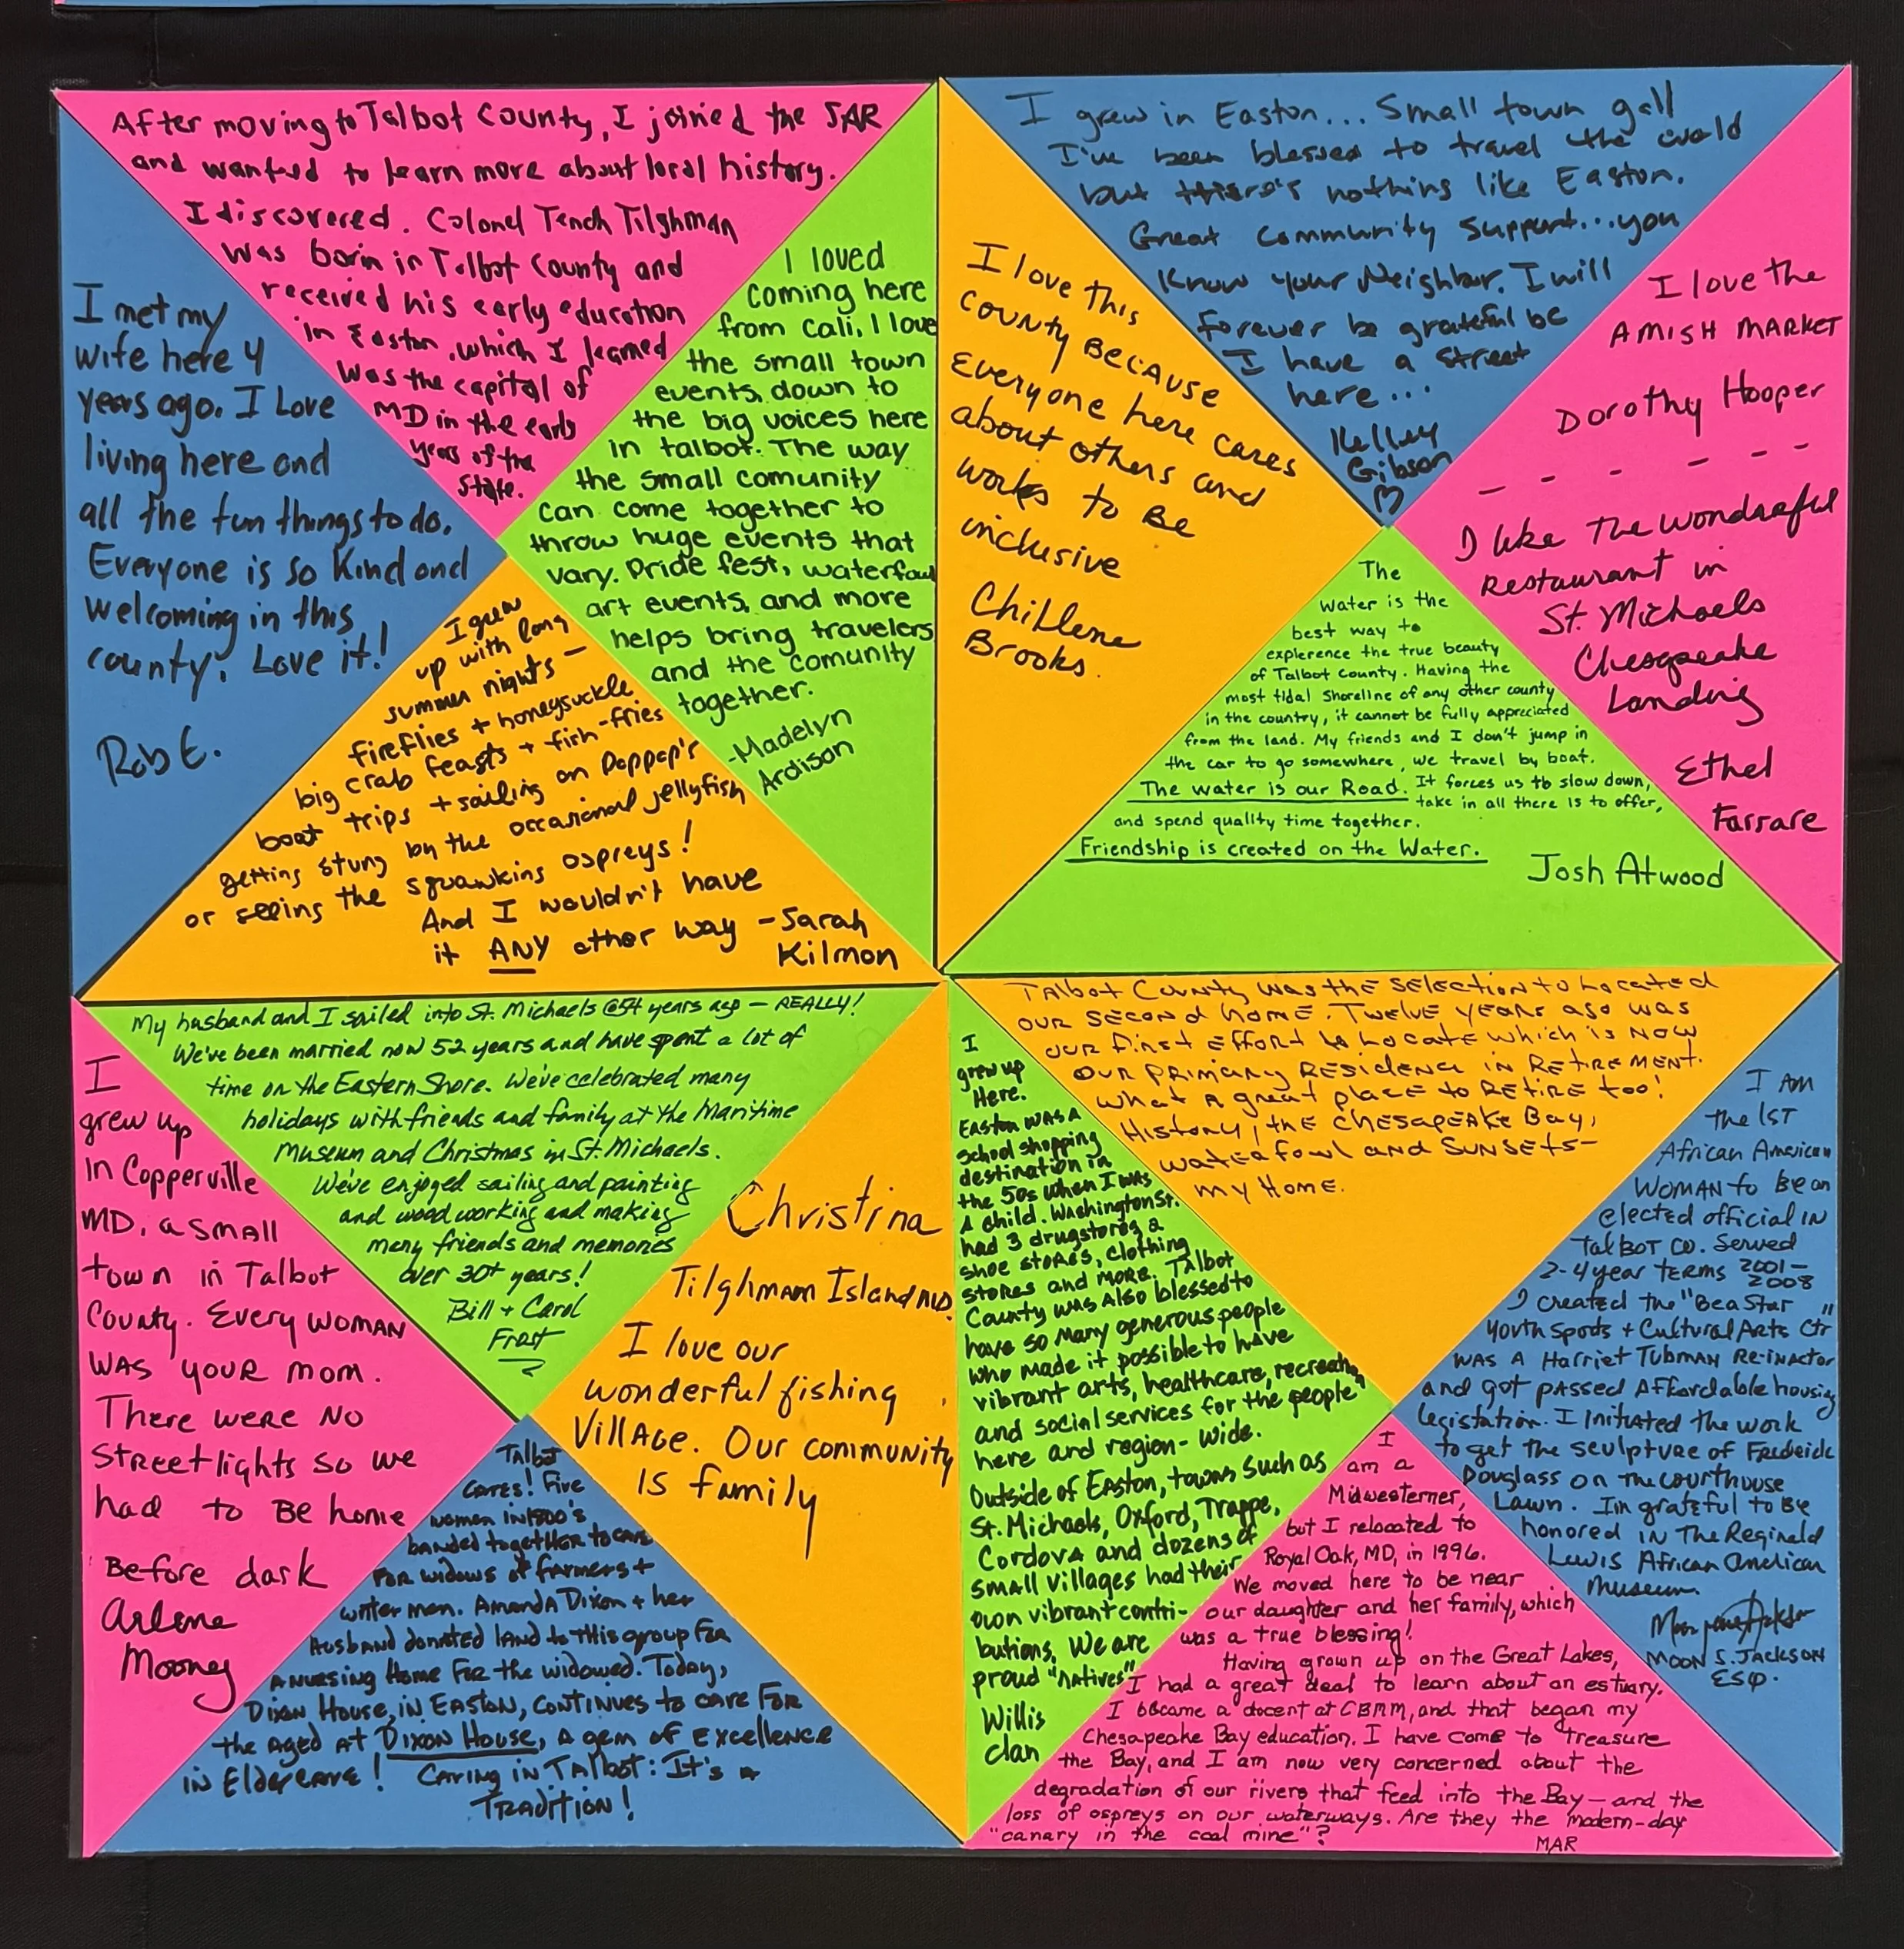 After moving to Talbot County, I joined the SAR
and wanted to learn more about local history.
I discovered. Colonel Tench Tilghman
was born in Talbot County and
received his early education
in Easton, which I learned
was the capital of
MD in the early
years of the
State.
I met my
wife here 4
years ago. I Love
living here and
all the fun things to do.
Everyone is so Kind and
welcoming in this
county. Love it!
Rob E.
I loved
coming here
from cali, I love
the small town
events, down to
the big voices here
in talbot. The way
the small comunity
can come together to
throw huge events that
vary. Pride fest, waterfowl
art events, and more
helps bring travelers
and the comunity
together.
-Madelyn
Ardison
I grew
up with long
summer nights —
fireflies + honeysuckle
big crab feasts + fish-fries
boat trips + sailing on Poppop's
getting stung by the occasional jellyfish
or seeing the squawking ospreys!
And I wouldn't have
it ANY other way - Sarah
Kilmon
I grew in Easton... Small town gall
I've been blessed to travel the world
but there's nothing like Easton.
Great Community Support...you
Know your Neighbor. I will
forever be grateful be
I have a street
here...
Kelley
Gibson
I love this
County Because
Everyone here cares
about others and
works to Be
inclusive
Chillene
Brooks.
I love the
AMISH MARKET
Dorothy Hooper
- - - - -
I like The wondreaful
Restaurant in
St. Michaels
Chesapeake
Landing
Ethel
Farrare
The
water is the
best way to
experence the true beauty
of Talbot County. Having the
most tidal shoreline of any other county
in the country, it cannot be fully appreciated
from the land. My friends and I don't jump in
the car to go somewhere, we travel by boat.
The water is our Road. It forces us to slow down,
take in all there is to offer,
and spend quality time together.
Friendship is created on the Water.
Josh Atwood
My husband and I sailed into St. Michaels @54 years ago — REALLY!
We've been married now 52 years and have spent a lot of
time on the Eastern Shore. We've celebrated many
holidays with friends and family at the Maritime
Museum and Christmas in St. Michaels.
We've enjoyed sailing and painting
and woodworking and making
many friends and memories
over 30+ years!
Bill + Carol
Frost
I
grew up
in Copperville
MD, a small
town in Talbot
County. Every woman
was your mom.
There were no
Streetlights so we
had to Be home
Before dark
Arlene
Mooney
Christina
Tilghman Island MD.
I love our
wonderful fishing
Village. Our community
is family
Talbot
Cares! Five
women in 1800's
banded together to care
For widows of farmers +
water men. Amanda Dixon + her
Husband donated land to this group For
a nursing Home For the widowed. Today,
Dixon House, in Easton, continues to care For
the aged at Dixon House, a gem of Excellence
in Eldercare! Caring in Talbot: It's a
Tradition!
Talbot County was the selection to located
our second home. Twelve years ago was
our first effort to locate which is now
our primary residence in retirement.
What a great place to retire too!
History, the Chesapeake Bay,
waterfowl and sunsets—
my home.
I
grew up
Here.
Easton was a
school shopping
destination in
the 50s when I was
a child. Washington St.
had 3 drugstores, a
shoe stores, clothing
stores and more. Talbot
County was also blessed to
have so many generous people
who made it possible to have
vibrant arts, healthcare, recreation,
and social services for the people
here and region-wide.
Outside of Easton, towns such as
St. Michaels, Oxford, Trappe,
Cordova and dozens of
small villages had their
own vibrant contri-
butions. We are
proud "natives"
Willis
clan
I am
the 1st
African American
woman to be an
elected official in
Talbot Co. Served
2-4 year terms 2001-
2008
I created the "Bea Star"
Youth Spods + Cultural Arts Ctr
was a Harriet Tubman Re-inactor
and got passed affordable housing
legistation. I Initiated the work
to get the sculpture of Frederick
Douglass on the courthouse
Lawn. I'm grateful to be
honored in The Reginald
Lewis African American
Museum.
Moon S. Jackson
ESQ.
I
am a
Midwesterner,
but I relocated to
Royal Oak, MD, in 1996.
We moved here to be near
our daughter and her family, which
was a true blessing!
Having grown up on the Great Lakes,
I had a great deal to learn about an estuary.
I became a docent at CBMM, and that began my
Chesapeake Bay education. I have come to treasure
the Bay, and I am now very concerned about the
degradation of our rivers that feed into the Bay — and the
loss of ospreys on our waterways. Are they the modern-day
"canary in the coal mine"?
MAR